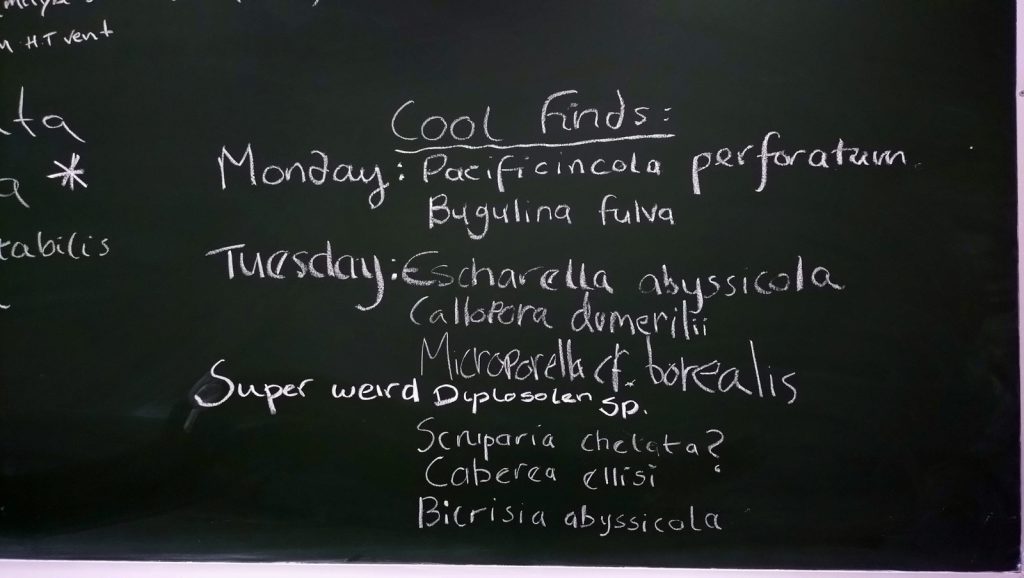 H.T vent
Cool finds:
*
Monday: Pacificincola perforatum
Bugulina fulva
tabilis
Tuesday: Escharella abyssicola
Callopora dumerilii
Microporella cf. borealis
Super weird Diplosolen sp.
Scruparia chelata?
Caberea ellisi
Bicrisia abyssicola